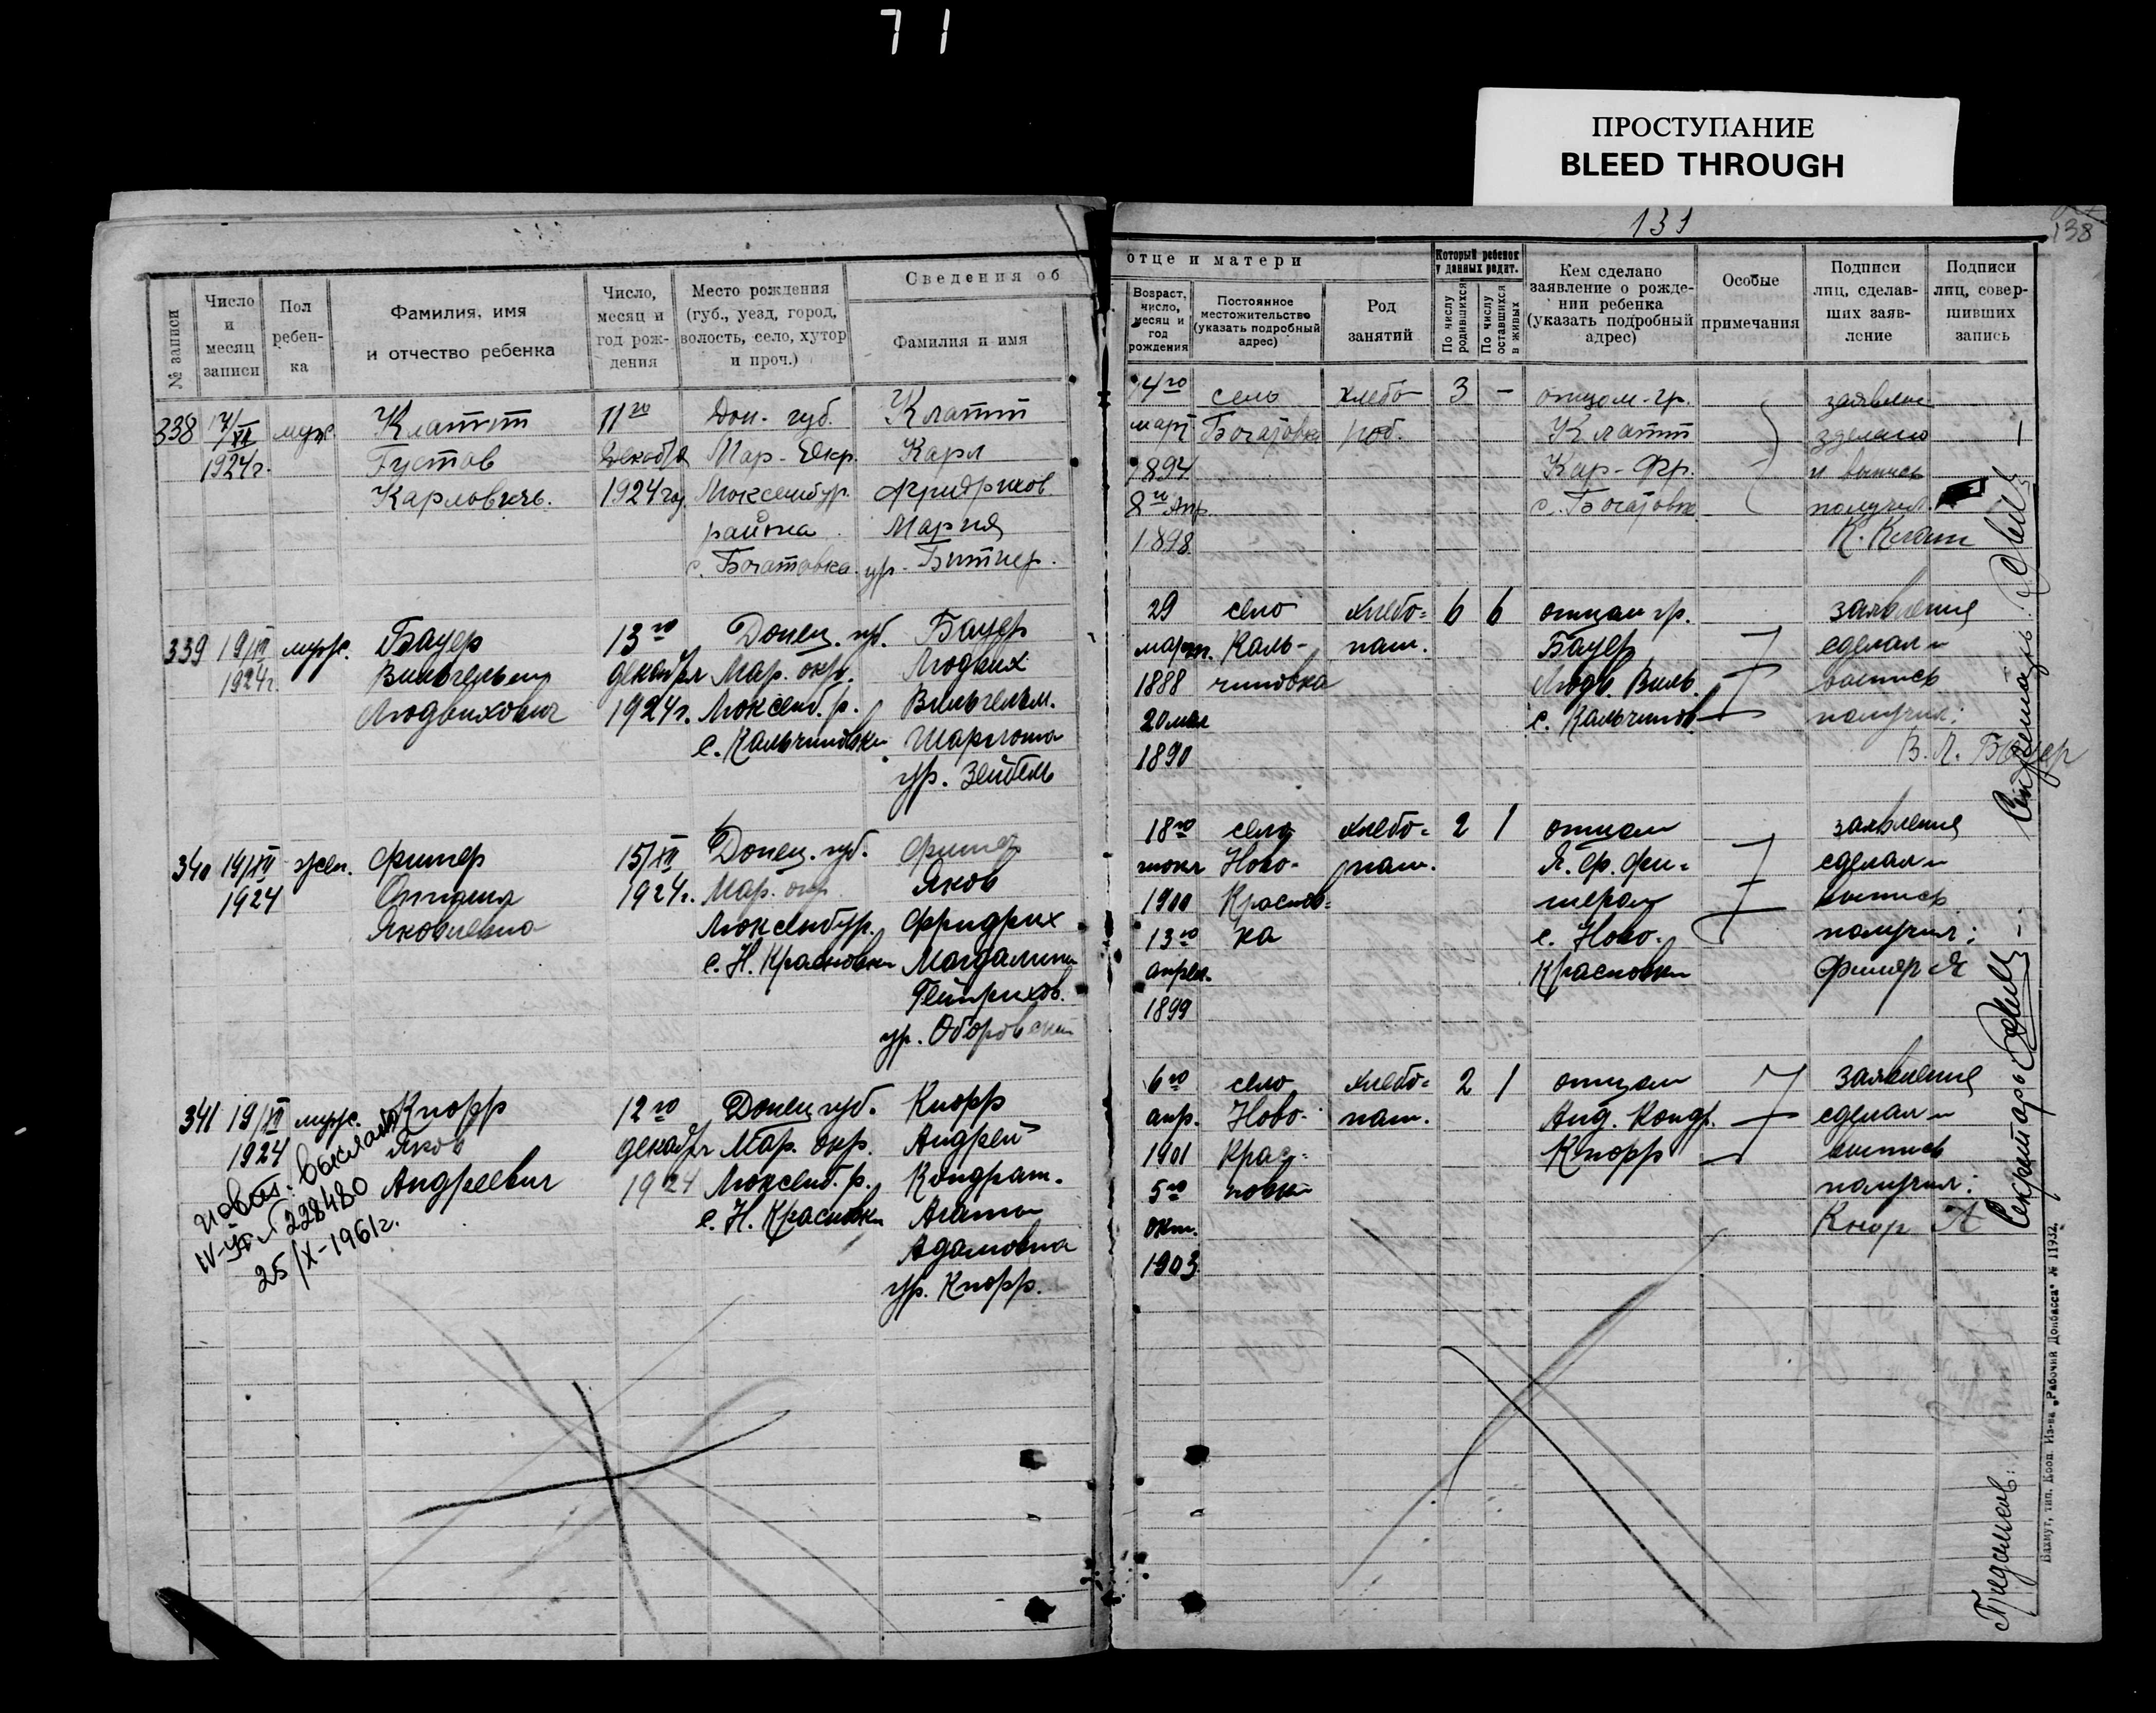 71
ПРОСТУПАНИЕ
BLEED THROUGH
131
138
№ записи
Число и месяц записи
Пол ребен-ка
Фамилия, имя и отчество ребенка
Число, месяц и год рож-дения
Место рождения (губ., уезд, город, волость, село, хутор и проч.)
Сведения об
Фамилия и имя
отце и матери
Возраст, число, месяц и год рождения
Постоянное местожительство (указать подробный адрес)
Род занятий
Который ребенок у данных родит.
По числу родившихся
По числу оставшихся в живых
Кем сделано заявление о рожде-нии ребенка (указать подробный адрес)
Особые примечания
Подписи лиц, сделав-ших заяв-ление
Подписи лиц, совер-шивших запись
338 17/XII муж. Клатт 11го Дон. губ. Клатт
1924г. Густав Декабря Мар. Окр. Карл
Карловичь. 1924 год Люксембур. Фридрихов.
района Мария
с. Богатовка. ур. Битнер.
14го село хлебо 3 - отцом гр. заявлен
март Богатовка роб. Клатт зделано
1894 Кар. Фр. и выпись
8го Апр. с. Богатовк получил.
1898. К. Клатт
339 19/XII муж. Бауер 13го Донец. губ. Бауер
1924г. Вильгельм декабря Мар. окр. Людвих
Людвихович 1924г. Люксемб. р. Вильгельм.
с. Кальчиновки Шарлота
ур. Зейбель
29 село хлебо= 6 6 отцом гр. заявление
март. Каль- паш. Бауер сделал и
1888 чиновка Людв. Виль. выпись
20 мая с. Кальчинов. получил:
1890 В. Л. Бауер
340 19/XII жен. Фишер 15/XII Донец. губ. Фишер
1924 1924г. Мар. окр. Яков
Яковлевна Люксембур. Фридрих
с. Н. Красновки Магдалина
Гейнрихов.
18го село хлебо= 2 1 отцом заявление
июня Ново- паш. Я. Фр. Фи= сделал и
1900 Краснов= шером выпись
13го ка с. Ново- получил:
апрел. Красновки Фишер Я
1899
341 19/XII муж. Кнорр 12го Донец. губ. Кнорр
1924 Яков декабря Мар. окр. Андрей
Андреевич 1924 Люксемб. р. Кондрат.
с. Н. Красновки Агата
Адамовна
ур. Кнорр.
6го село хлебо= 2 1 отцом заявление
апр. Ново- паш. Анд. Кондр. сделал и
1901 Крас- Кнорр выпись
5го новки получил:
окт. Кнор А
1903
228480
25/X-1961г.
Секретарь
Секретарь
Бахмут, тип. Кооп. Из-ва „Рабочий Донбасса" № 11932.